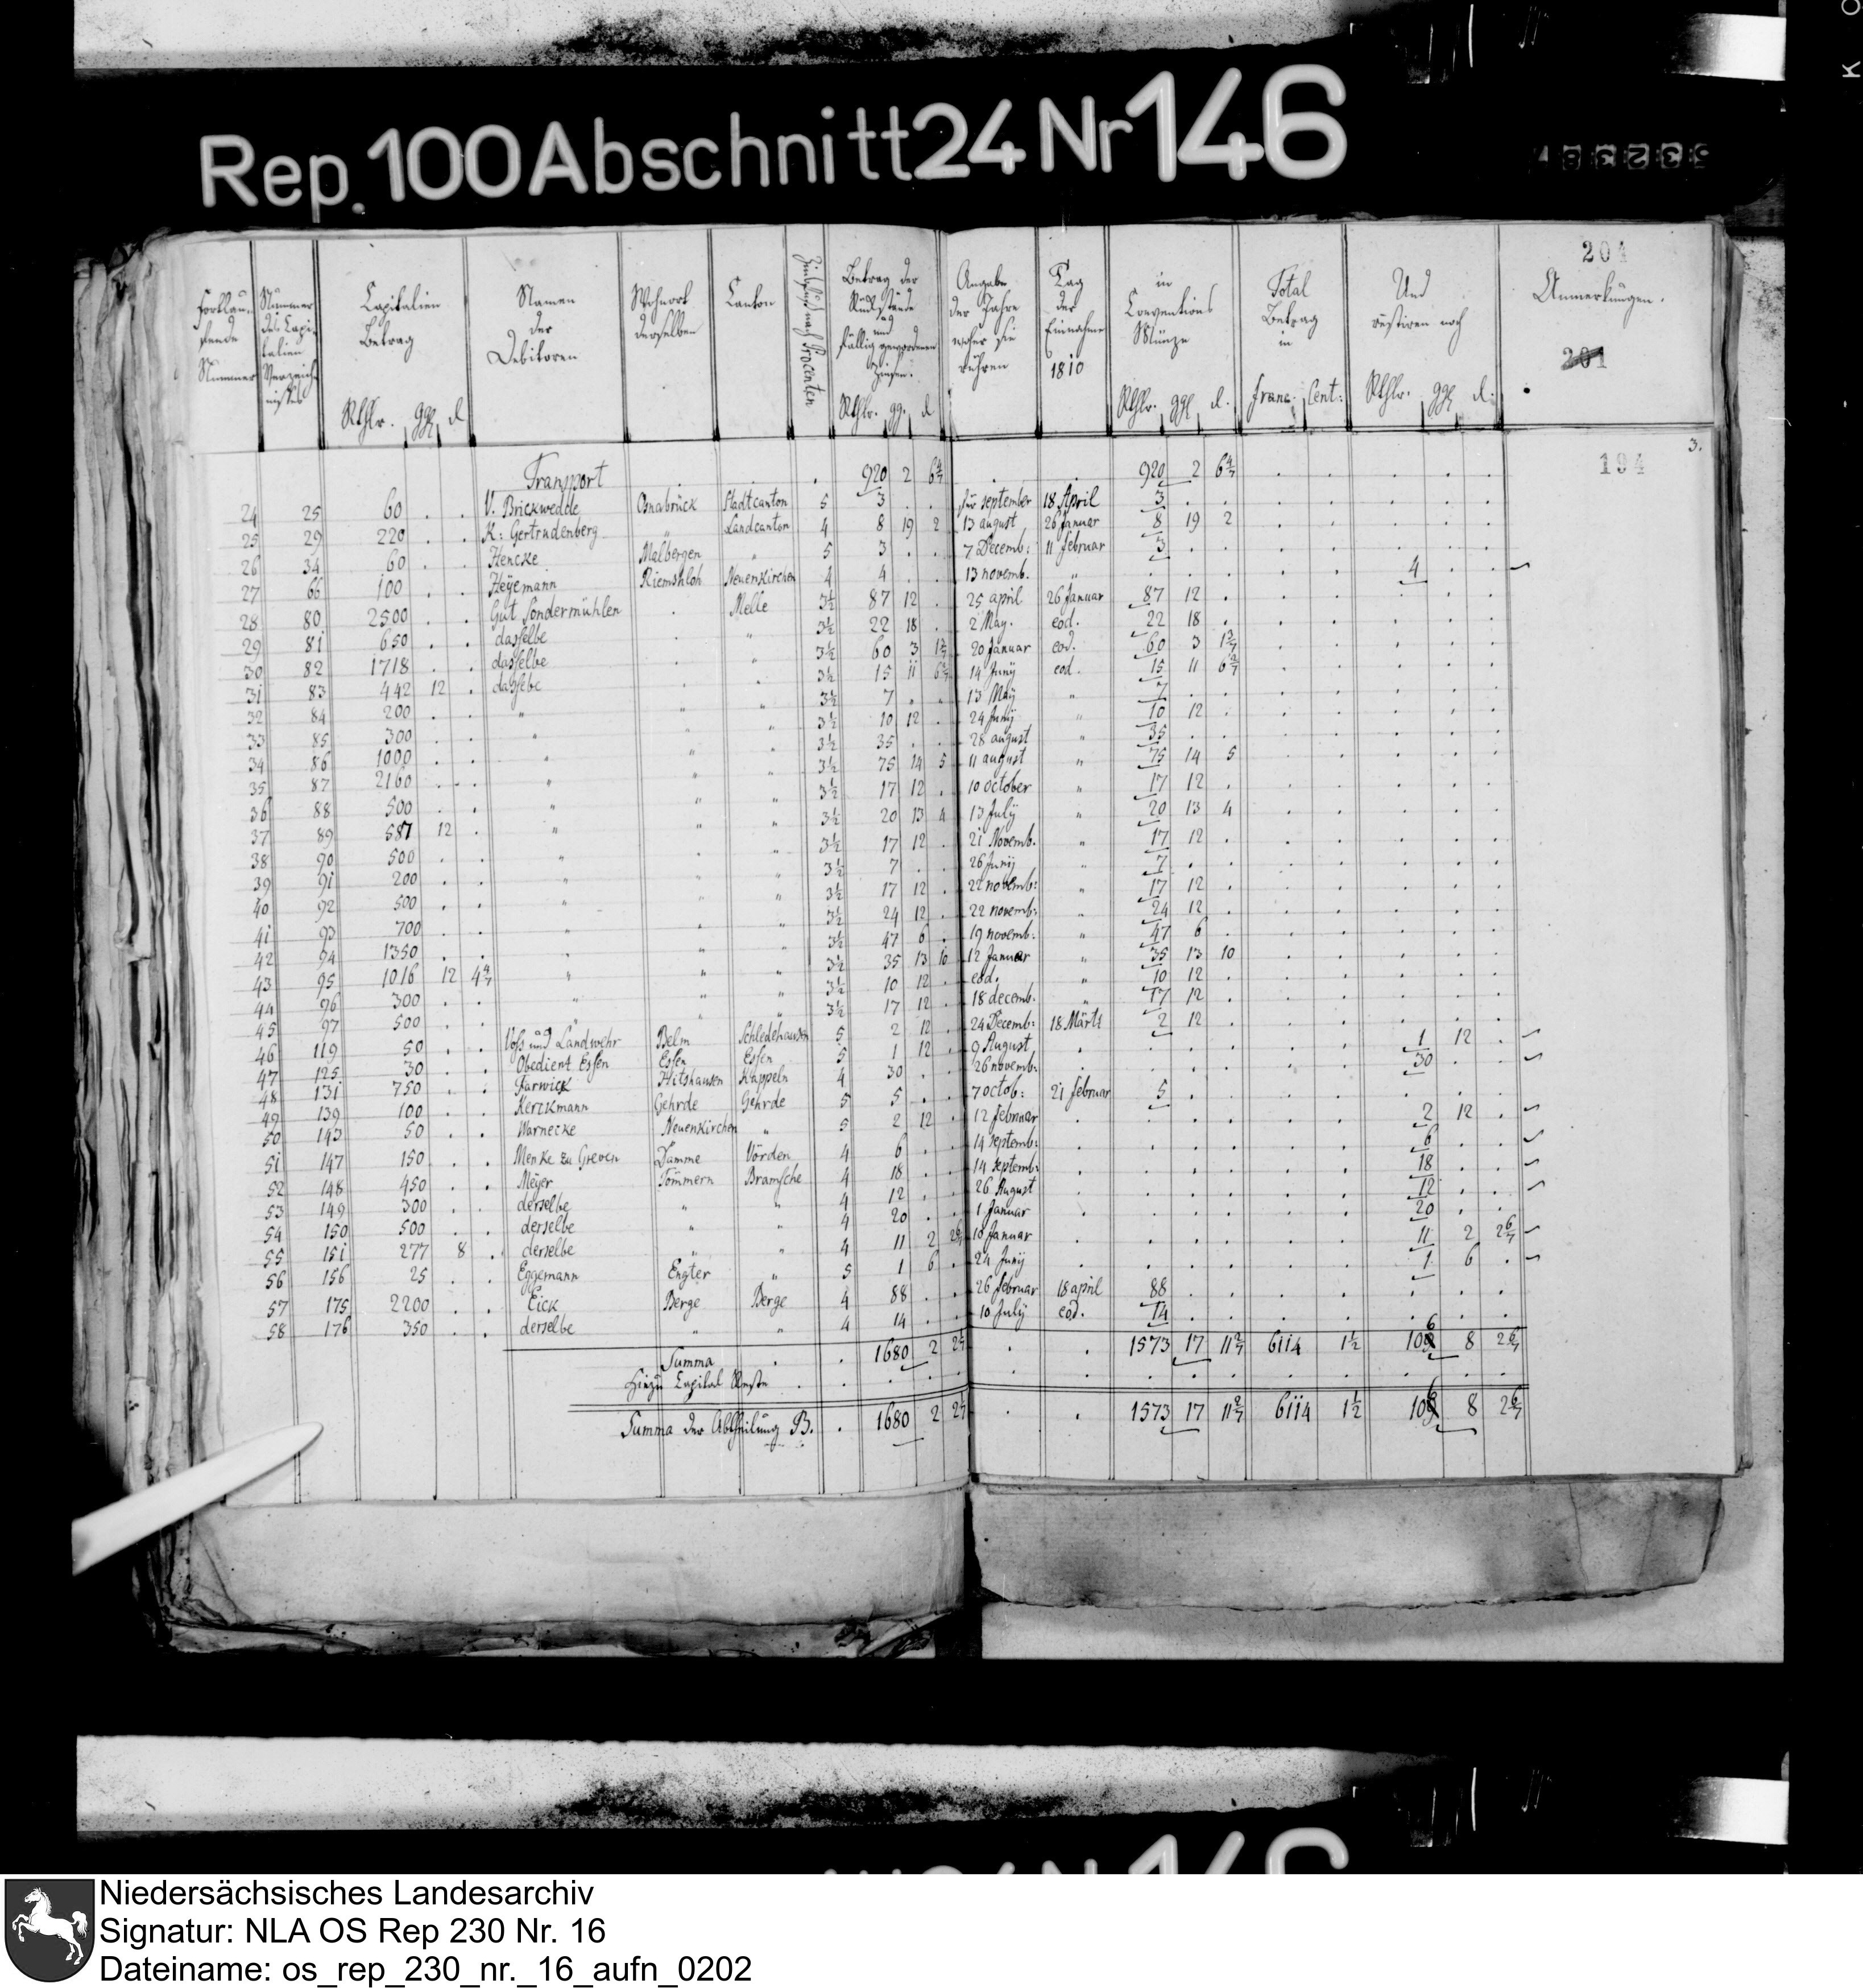 Rep. 100 Abschnitt 24 Nr 146
204
Fortlau- fende Nummer | Nummer des Capi- talien Verzeich- nisses | Capitalien Betrag Rthlr. ggl d | Namen der Debitoren | Wohnort derselben | Canton | Zinsfuß nach Procenten | Betrag der Rückstände und fällig gewordenen Zinsen. Rthlr. gg. d | Angabe der Jahre woher sie rühren | Tag der Einnahme 1810 | in Conventions Münze Rthlr. ggl d. | Total Betrag in franc. Cent: | Und restiren noch Rthlr. ggl d. | Anmerkungen.
201
3.
194
Transport . . . 920 2 6 4/7 . . 920 2 6 4/7 . . . . .
24 25 60 . . V. Brickwedde Osnabrück Stadtcanton 5 3 . . für september 18 April 3 . . . . . . .
25 29 220 . . K: Gertrudenberg " Landcanton 4 8 19 2 13 august 26 Januar 8 19 2 . . . . .
26 34 60 . . Hencke Malbergen " 5 3 . . 7 Decemb: 11 februar 3 . . . . . . .
27 66 100 . . Heyemann Riemshloh Neuenkirchen 4 4 . . 13 novemb. " . . . . . 4 . .
28 80 2500 . . Gut Sondermühlen . Melle 3½ 87 12 . 25 april 26 Januar 87 12 . . . . . .
29 81 650 . . dasselbe . " 3½ 22 18 . 2 May. eod. 22 18 . . . . . .
30 82 1718 . . dasselbe . " 3½ 60 3 1 3/7 20 Januar eod. 60 3 1 3/7 . . . . .
31 83 442 12 . dasselbe . " 3½ 15 11 6 6/7 14 Juny eod. 15 11 6 6/7 . . . . .
32 84 200 . . " " " 3½ 7 . . 13 May " 7 . . . . . . .
33 85 300 . . " " " 3½ 10 12 . 24 Juny " 10 12 . . . . . .
34 86 1000 . . " " " 3½ 35 . . 28 august " 35 . . . . . . .
35 87 2160 . . " " " 3½ 75 14 5 11 august " 75 14 5 . . . . .
36 88 500 . . " " " 3½ 17 12 . 10 october " 17 12 . . . . . .
37 89 587 12 . " " " 3½ 20 13 4 13 July " 20 13 4 . . . . .
38 90 500 . . " " " 3½ 17 12 . 21 Novemb. " 17 12 . . . . . .
39 91 200 . . " " " 3½ 7 . . 26 Juny " 7 . . . . . . .
40 92 500 . . " " " 3½ 17 12 . 22 novemb: " 17 12 . . . . . .
41 93 700 . . " " " 3½ 24 12 . 22 novemb: " 24 12 . . . . . .
42 94 1350 . . " " " 3½ 47 6 . 19 novemb: " 47 6 . . . . . .
43 95 1016 12 4 4/7 " " " 3½ 35 13 10 12 Januar " 35 13 10 . . . . .
44 96 300 . . " " " 3½ 10 12 . eod. " 10 12 . . . . . .
45 97 500 . . " " " 3½ 17 12 . 18 decemb. " 17 12 . . . . . .
46 119 50 . . Voß und Landwehr Belm Schledehausen 5 2 12 . 24 Decemb: 18 Märtz 2 12 . . . . . .
47 125 30 . . Obedient Essen Essen Essen 5 1 12 . 9 August . . . . . . 1 12 .
48 131 750 . . Farwick Hitshausen Kappeln 4 30 . . 26 novemb: . . . . . . 30 . .
49 139 100 . . Kerckmann Gehrde Gehrde 5 5 . . 7 octob: 21 februar 5 . . . . . . .
50 143 50 . . Warnecke Neuenkirchen " 5 2 12 . 12 februar . . . . . . 2 12 .
51 147 150 . . Menke zu Greven Damme Vörden 4 6 . . 14 septemb: . . . . . . 6 . .
52 148 450 . . Meyer Tömmern Bramsche 4 18 . . 14 septemb: . . . . . . 18 . .
53 149 300 . . derselbe " " 4 12 . . 26 August . . . . . . 12 . .
54 150 500 . . derselbe " " 4 20 . . 1 Januar . . . . . . 20 . .
55 151 277 8 . derselbe " " 4 11 2 2 6/7 10 Januar . . . . . . 11 2 2 6/7
56 156 25 . . Eggemann Engter " 5 1 6 . 24 Juny . . . . . . 1 6 .
57 175 2200 . . Eick Berge Berge 4 88 . . 26 februar 18 april 88 . . . . . . .
58 176 350 . . derselbe " " 4 14 . . 10 July eod. 14 . . . . . . .
Summa . . 1680 2 2 1/7 . . 1573 17 11 2/7 6114 1½ 106 8 2 6/7
Hiezu Capital Reste . . . . . . . . . . . . . . .
Summa der Abtheilung B. . 1680 2 2 1/7 . . 1573 17 11 2/7 6114 1½ 106 8 2 6/7
Niedersächsisches Landesarchiv
Signatur: NLA OS Rep 230 Nr. 16
Dateiname: os_rep_230_nr._16_aufn_0202